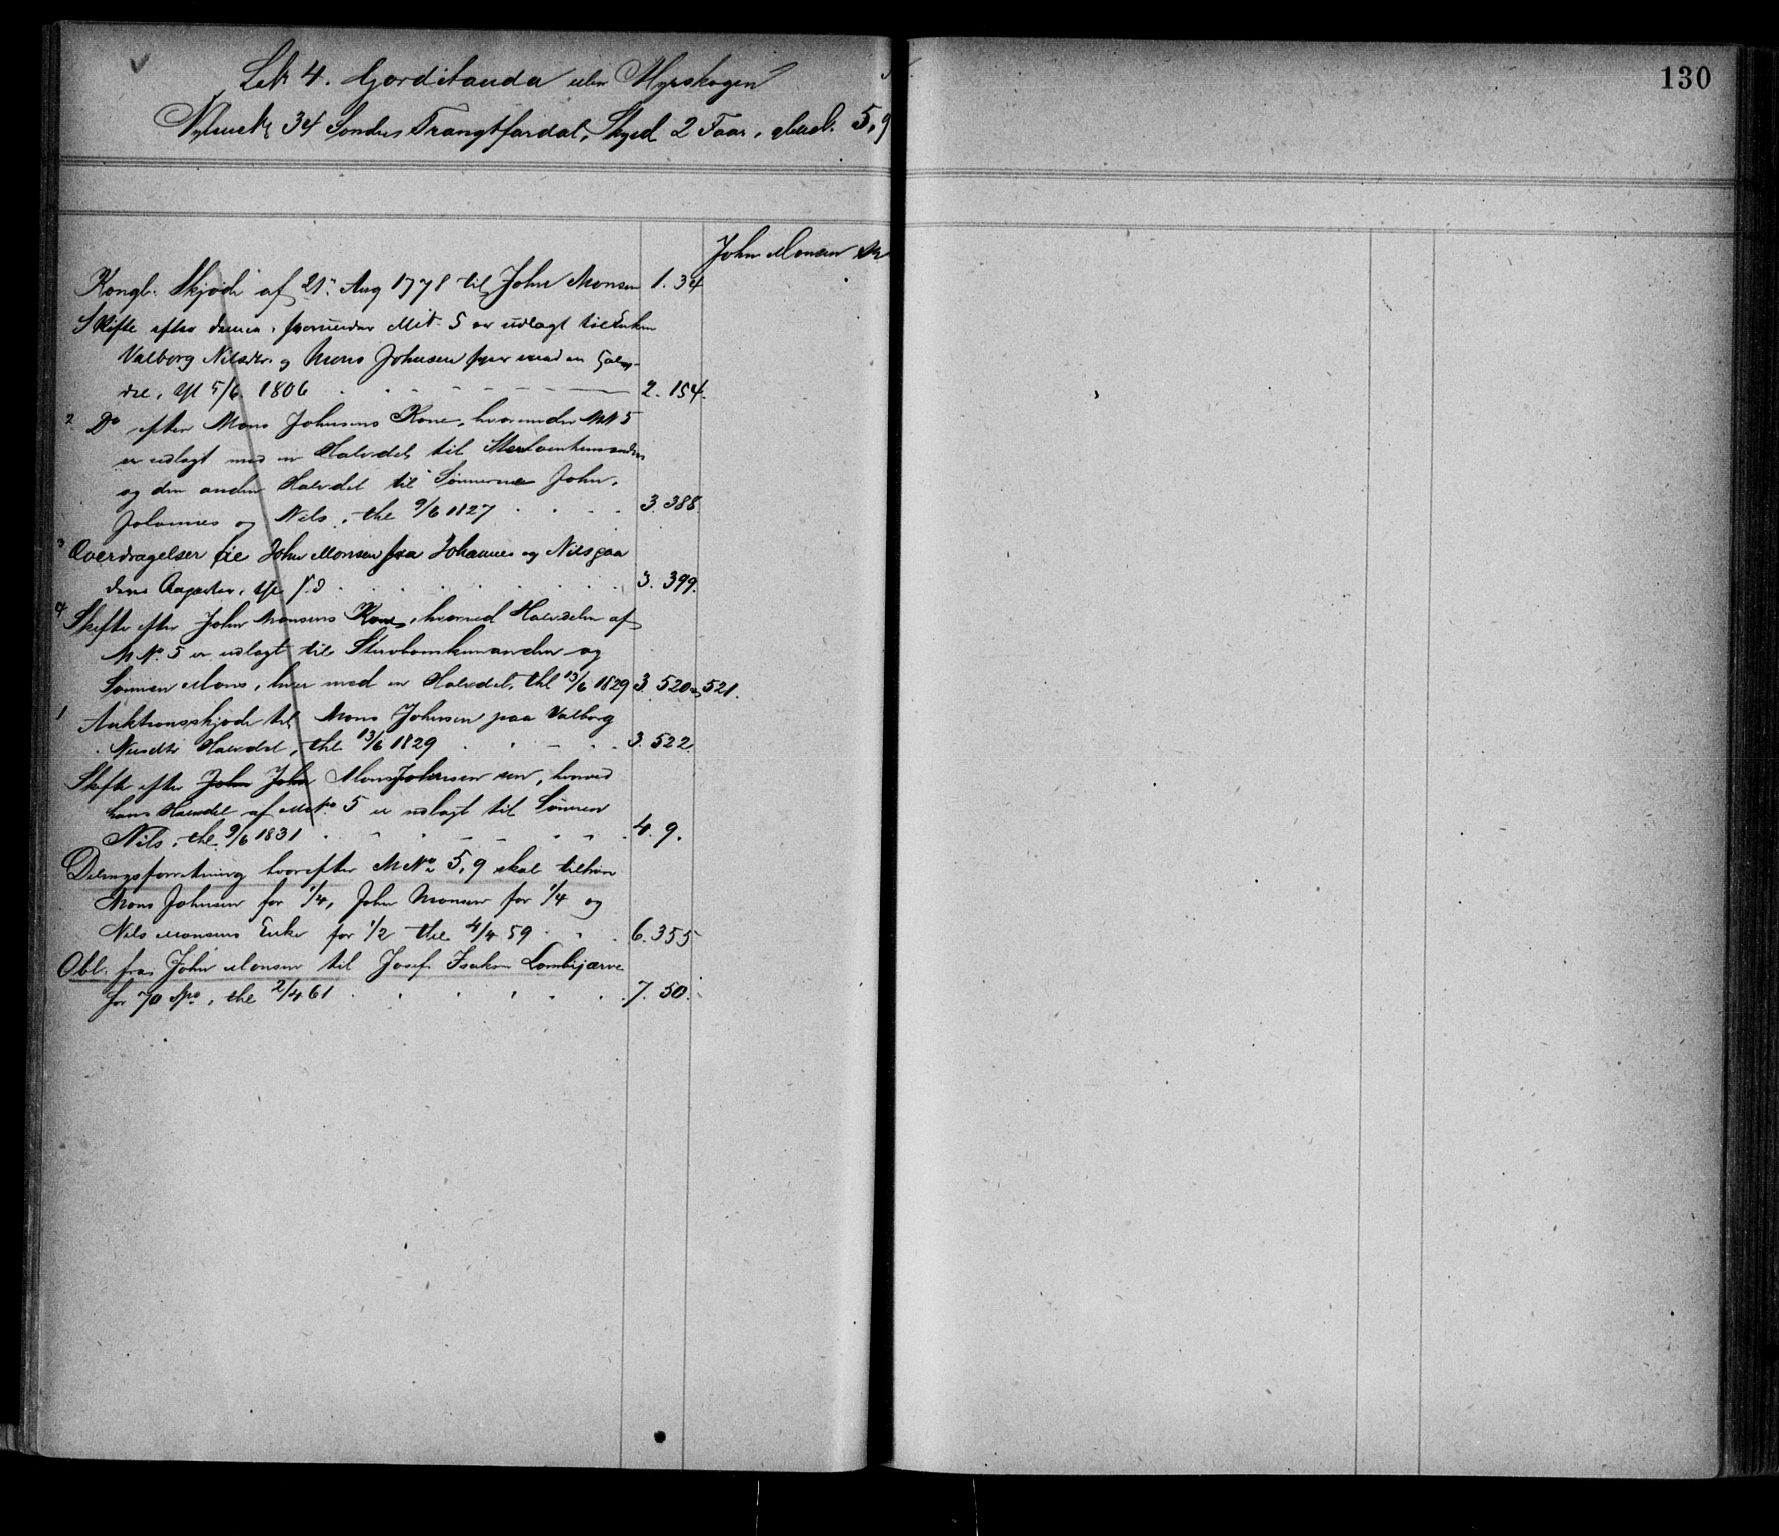 130
Lit 4. Gorditanda eller Myrskogen
34 Søndre Skyld 2 5,9
John Monsen
Kongl. Skjøde af 21. Aug 1778 til John Monsen 1. 34
Skifte efter denne, hvorunder Mt. 5 er udlagt til Enken
Valborg Nilsdtr. og Mons Johnsen hver med en Halv-
del, thl 5/6 1806 2. 154.
2 Do efter Mons Johnsens Kone, hvorunder MN 5
er udlagt med en Halvdel til
og den anden Halvdel til Sønnerne John,
Johannes og Nils, thl 9/6 1827 3. 388
3 Overdragelser til John Monsen fra Johannes og Nils paa
deres Arveparter, thl s.d. 3. 399.
4 Skifte efter John Monsens Kone, hvorved Halvdelen af
M No. 5 er udlagt til Stervbomskmanden og
Sønnen Mons, hver med en Halvdel, thl 13/6 1829 3. 520 og 521.
1 Auktionsskjøde til Mons Johnsen paa Valborg
Nilsdtr Halvdel, thl 13/6 1829 3. 522.
Skifte efter John John Mons Johnsen sen, hvorved
hans Halvdel af M No. 5 er udlagt til Sønnen
Nils, thl. 9/6 1831 4. 9.
Delingsforretning hvorefter M No 5,9 skal tilhøre
Mons Johnsen for 1/4, John Monsen for 1/4 og
Nils Monsens Enke for 1/2 thl 4/4 59 6. 355
Obl. fra John Monsen til Josef Isaksen Lombijærvi
for 70 Spd, thl 2/4 61 7. 50.